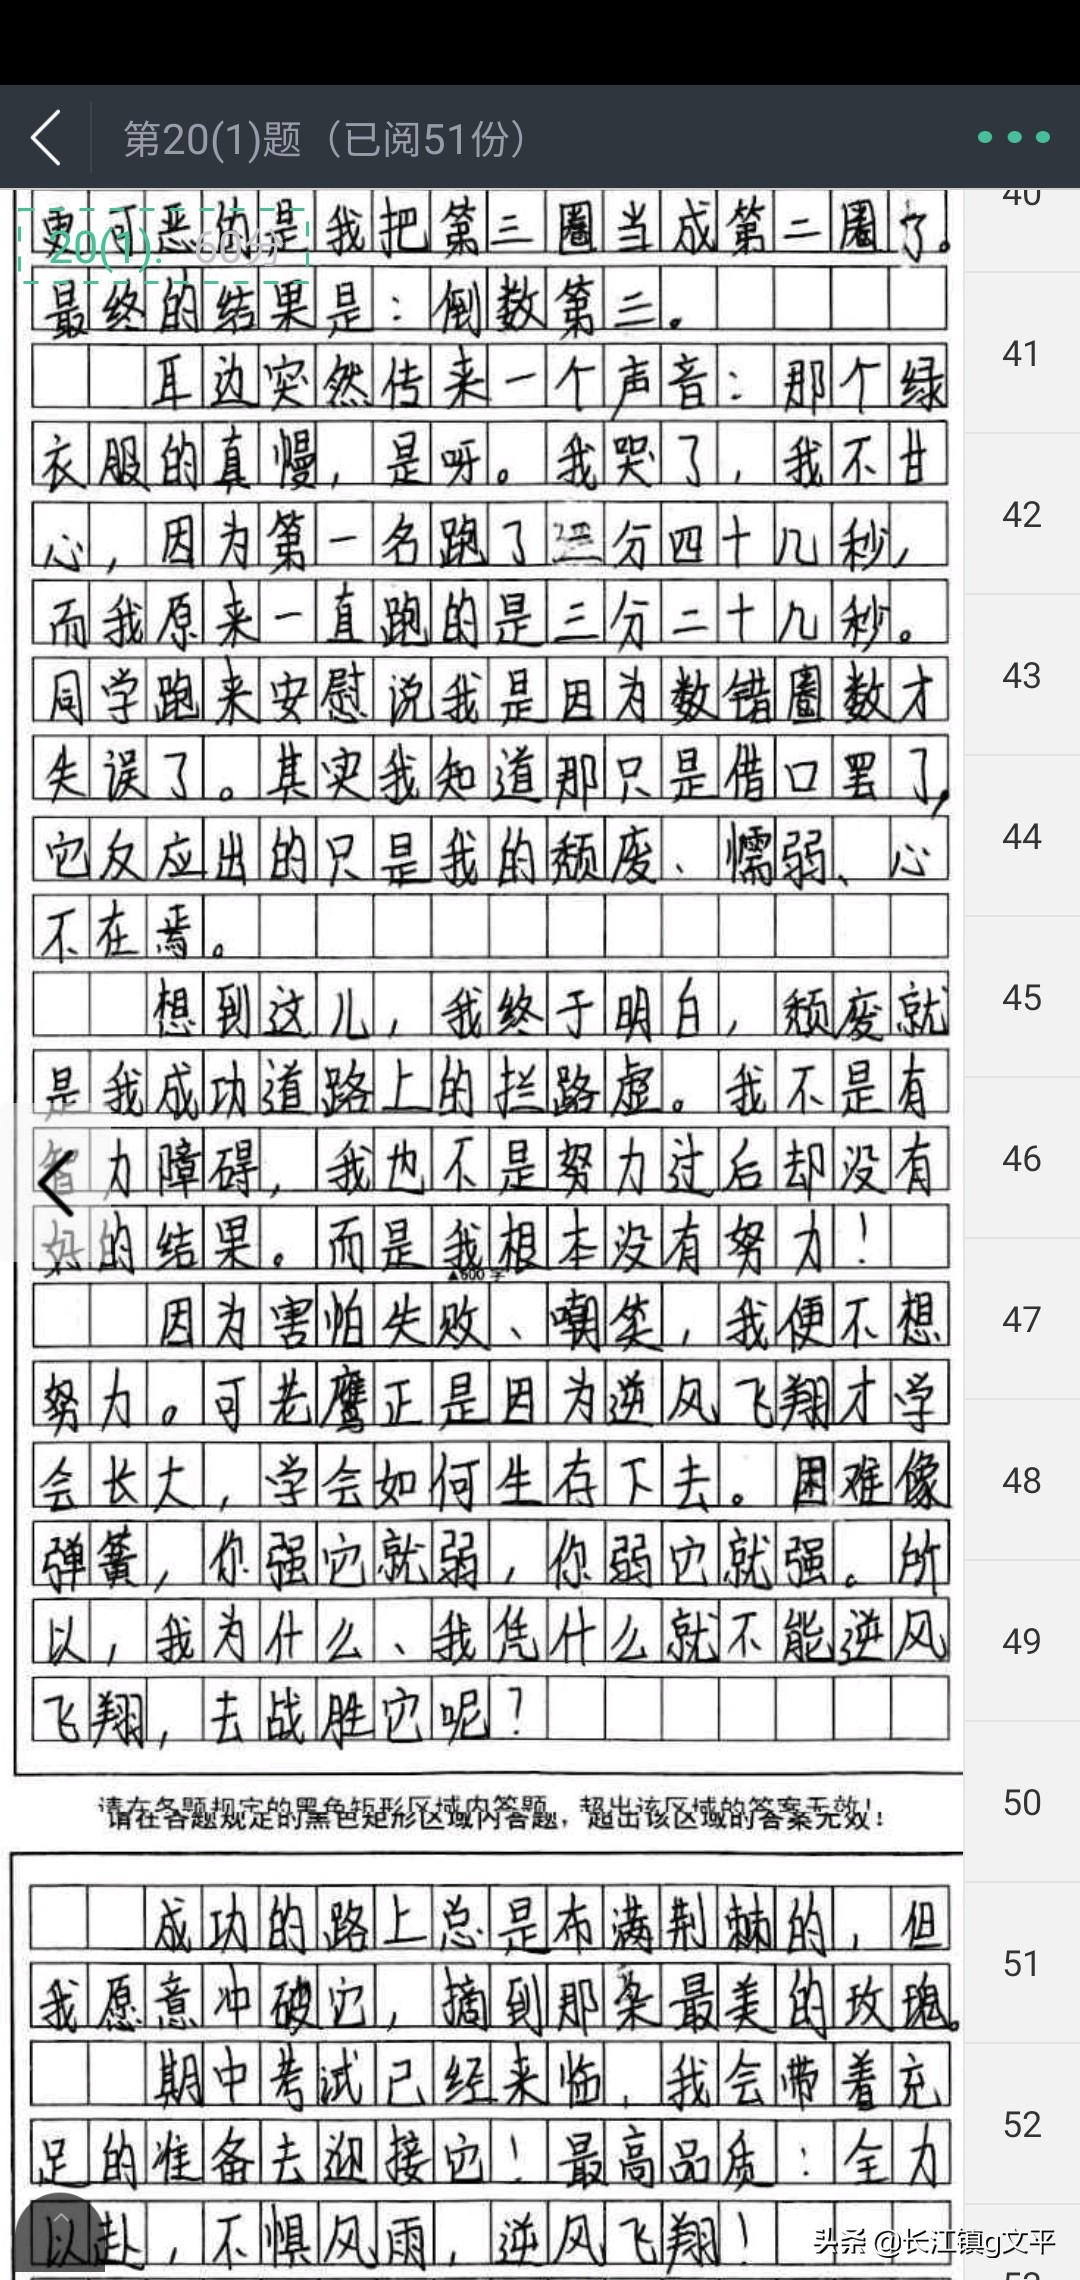 第20(1)题（已阅51份）
20(1). 60分
更可恶的是我把第三圈当成第二圈了。
最终的结果是：倒数第三。
耳边突然传来一个声音：那个绿
衣服的真慢，是呀。我哭了，我不甘
心，因为第一名跑了三分四十几秒，
而我原来一直跑的是三分二十几秒。
同学跑来安慰说我是因为数错圈数才
失误了。其实我知道那只是借口罢了，
它反应出的只是我的颓废、懦弱、心
不在焉。
想到这儿，我终于明白，颓废就
是我成功道路上的拦路虚。我不是有
智力障碍，我也不是努力过后却没有
好的结果。而是我根本没有努力！
▲600字
因为害怕失败、嘲笑，我便不想
努力。可老鹰正是因为逆风飞翔才学
会长大，学会如何生存下去。困难像
弹簧，你强它就弱，你弱它就强。所
以，我为什么、我凭什么就不能逆风
飞翔，去战胜它呢？
请在各题规定的黑色矩形区域内答题，超出该区域的答案无效！
请在各题规定的黑色矩形区域内答题，超出该区域的答案无效！
成功的路上总是布满荆棘的，但
我愿意冲破它，摘到那朵最美的玫瑰。
期中考试已经来临，我会带着充
足的准备去迎接它！最高品质：全力
以赴，不惧风雨，逆风飞翔！
40
41
42
43
44
45
46
47
48
49
50
51
52
53
头条 @长江镇g文平